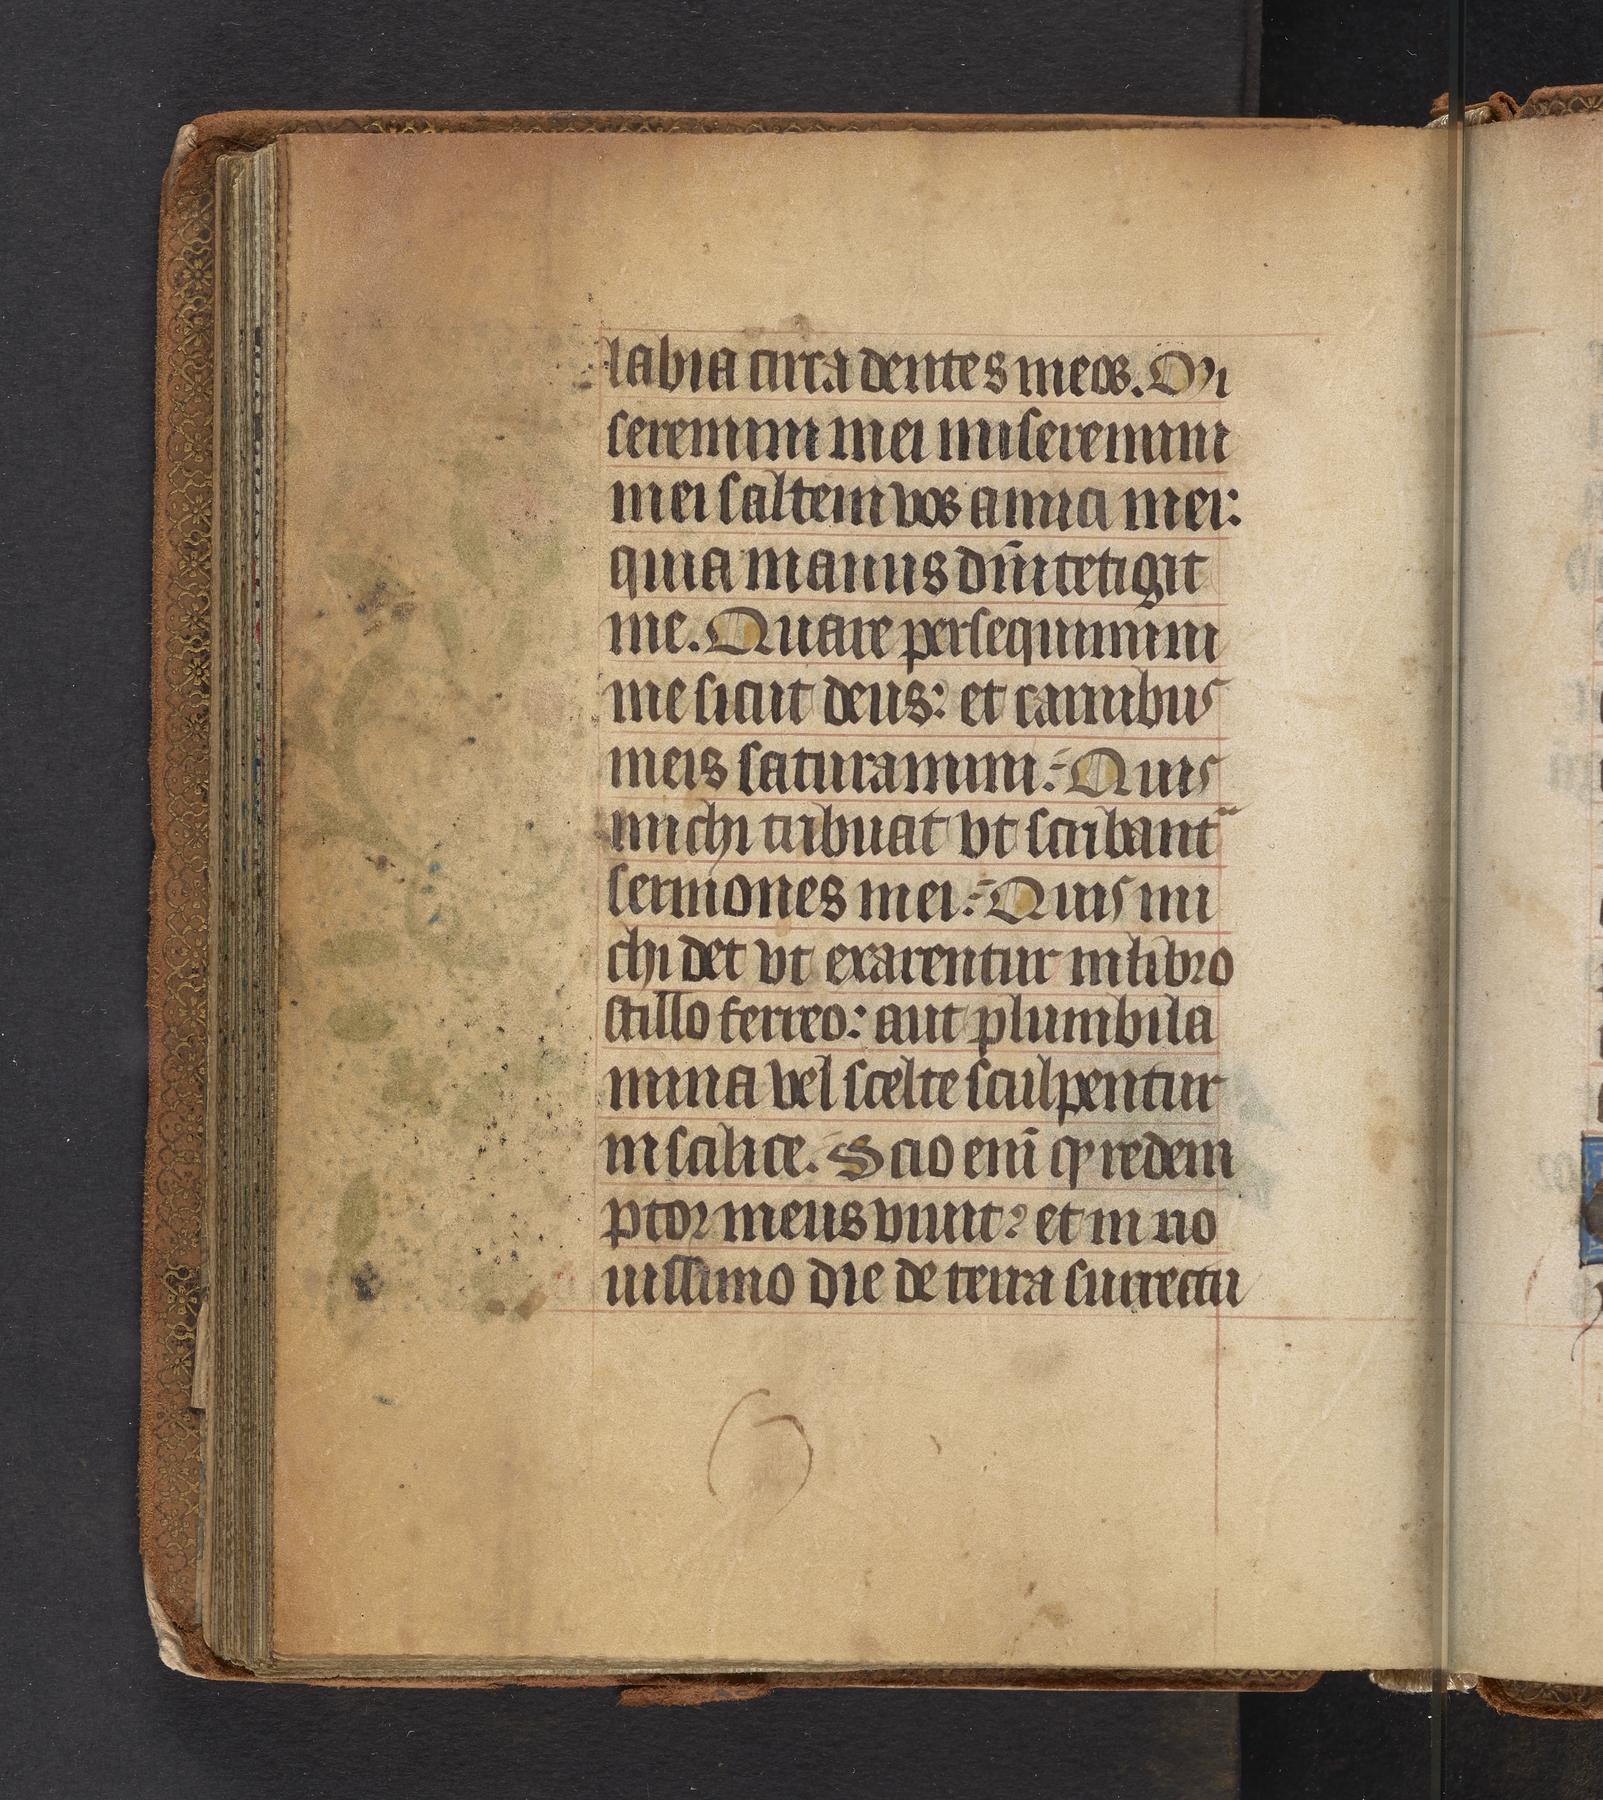 labia circa dentes meos. Mi
seremini mei miseremini
mei saltem vos amici mei:
quia manus dñi tetigit
me. Quare persequimini
me sicut deus: et carnibus
meis saturamini: Quis
michi tribuat vt scribant᷑
sermones mei: Quis mi
chi det vt exarentur in libro
stillo ferreo: aut plumbi la
mina vel scelte sculpentur
in scilice. Scio eni̅ qꝫ redem
ptor meus viuit? et in no
uissimo die de terra surrectu